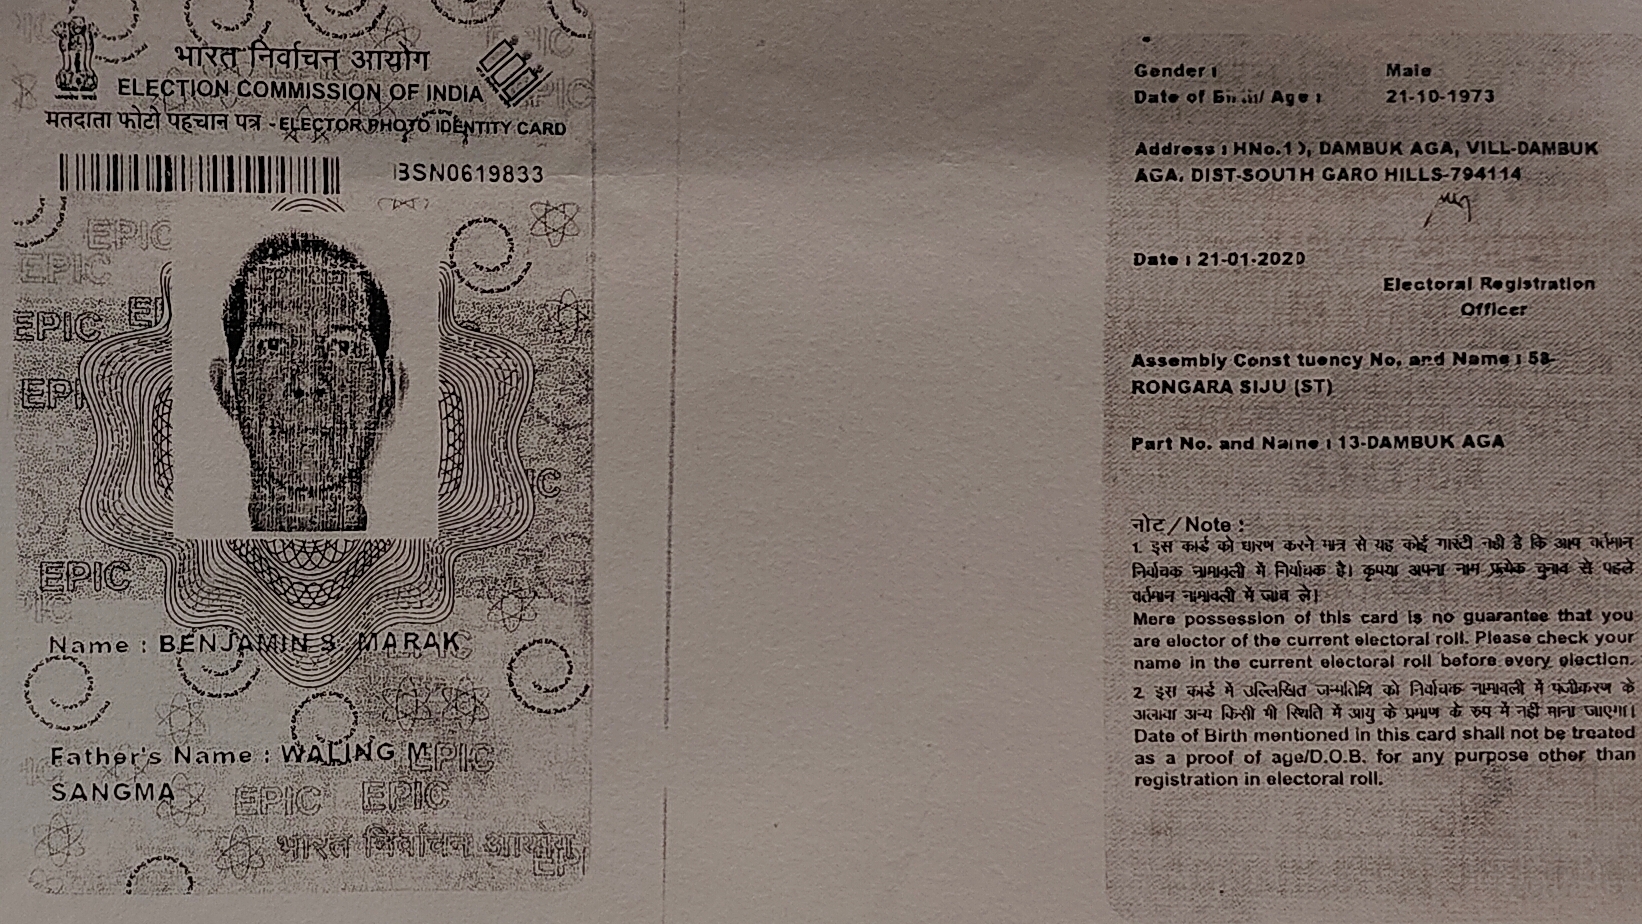 भारत निर्वाचन आयोग
ELECTION COMMISSION OF INDIA
मतदाता फोटो पहचान पत्र - ELECTOR PHOTO IDENTITY CARD
BSN0619833
EPIC
EPIC
EPIC
EPIC
EPIC
Name : BENJAMIN S. MARAK
Father's Name : WALING M
SANGMA
EPIC
EPIC EPIC
भारत निर्वाचन आयोग
Gender : Male
Date of Birth/ Age : 21-10-1973
Address : HNo. DAMBUK AGA, VILL-DAMBUK
AGA, DIST-SOUTH GARO HILLS-794114
Date : 21-01-2020
Electoral Registration
Officer
Assembly Constituency No. and Name : 58-
RONGARA SIJU (ST)
Part No. and Name : 13-DAMBUK AGA
नोट/Note :
1. इस कार्ड को धारण करने मात्र से यह कोई गारंटी नही है कि आप वर्तमान
निर्वाचक नामावली में निर्वाचक है। कृपया अपना नाम प्रत्येक चुनाव से पहले
वर्तमान नामावली में जांच ले।
Mere possession of this card is no guarantee that you
are elector of the current electoral roll. Please check your
name in the current electoral roll before every election.
2. इस कार्ड में उल्लिखित जन्मतिथि को निर्वाचक नामावली में पंजीकरण के
अलावा अन्य किसी भी स्थिति में आयु के प्रमाण के रुप में नहीं माना जाएगा।
Date of Birth mentioned in this card shall not be treated
as a proof of age/D.O.B. for any purpose other than
registration in electoral roll.